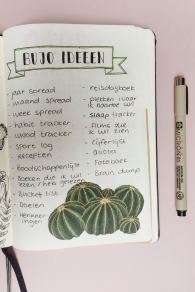 BUJO IDEEEN
jaar spread
maand spread
week spread
habit tracker
mood tracker
sport log
recepten
boodschappenlijst
boeken die ik wil
lezen / heb gelezen
Bucket list
Doelen
Herinner
ingen
- reisdagboek
- plekken waar
ik naartoe wil
- slaap tracker
- films die
ik wil zien
- Cijferlijst
- Quotes
- Fotoboek
- Brain dump